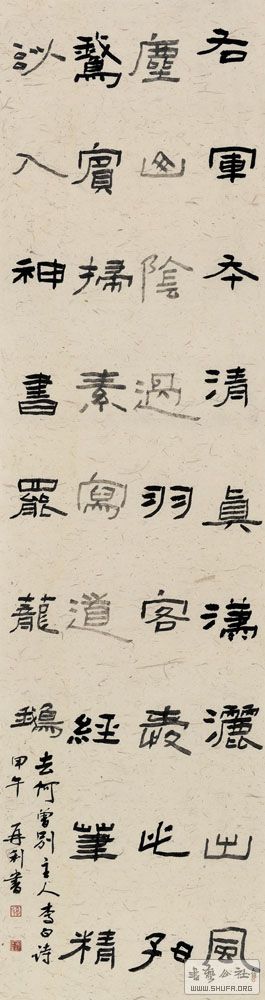 右軍本清真瀟灑出風
塵山陰過羽客愛此好
鵞賓掃素寫道經筆精
妙入神書罷蘢鵝
去何曾別主人李白詩
甲午 再利書
書藝公社
WWW.SHUFA.ORG